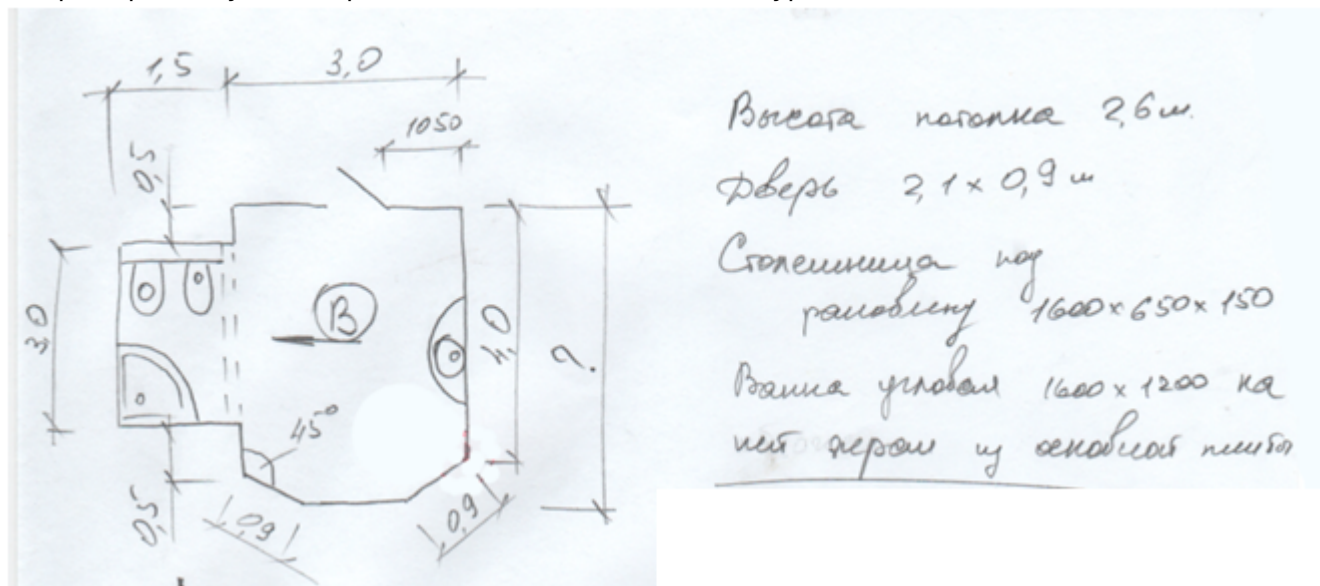 1,5
3,0
1050
0,5
3,0
В
4,0
?
45°
0,5
0,9
0,9
Высота потолка 2,6 м.
Дверь 2,1 х 0,9 м
Столешница под
раковину 1600х650х150
Ванна угловая 1600 х 1200 на
ней экран из основной плитки